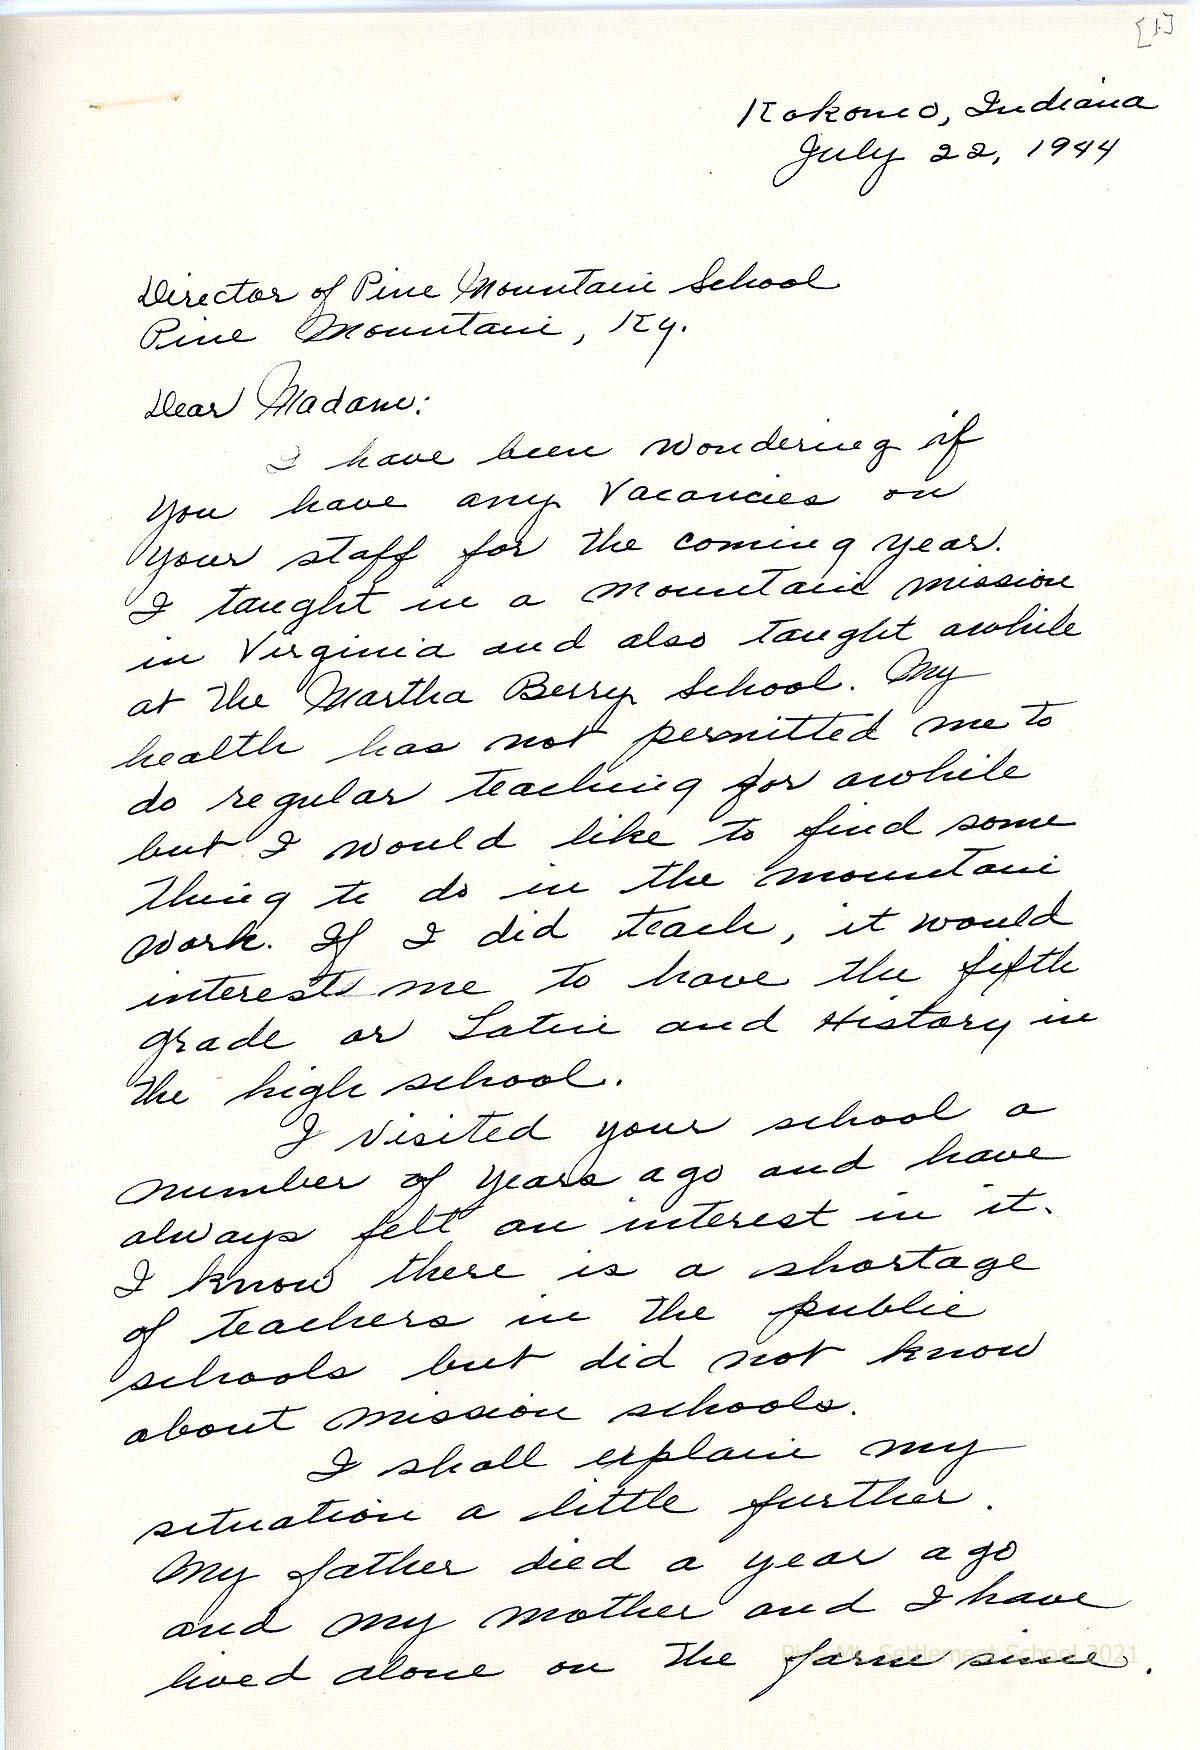 [1]
Kokomo, Indiana
July 22, 1944
Director of Pine Mountain School
Pine Mountain, Ky.
Dear Madam:
I have been wondering if
you have any vacancies on
your staff for the coming year.
I taught in a mountain mission
in Virginia and also taught awhile
at the Martha Berry School. My
health has not permitted me to
do regular teaching for awhile
but I would like to find some
thing to do in the mountain
work. If I did teach, it would
interest me to have the fifth
grade or Latin and History in
the high school.
I visited your school a
number of years ago and have
always felt an interest in it.
I know there is a shortage
of teachers in the public
schools but did not know
about mission schools.
I shall explain my
situation a little further.
My father died a year ago
and my mother and I have
lived alone on the farm since.
Pine Mt. Settlement School 2021